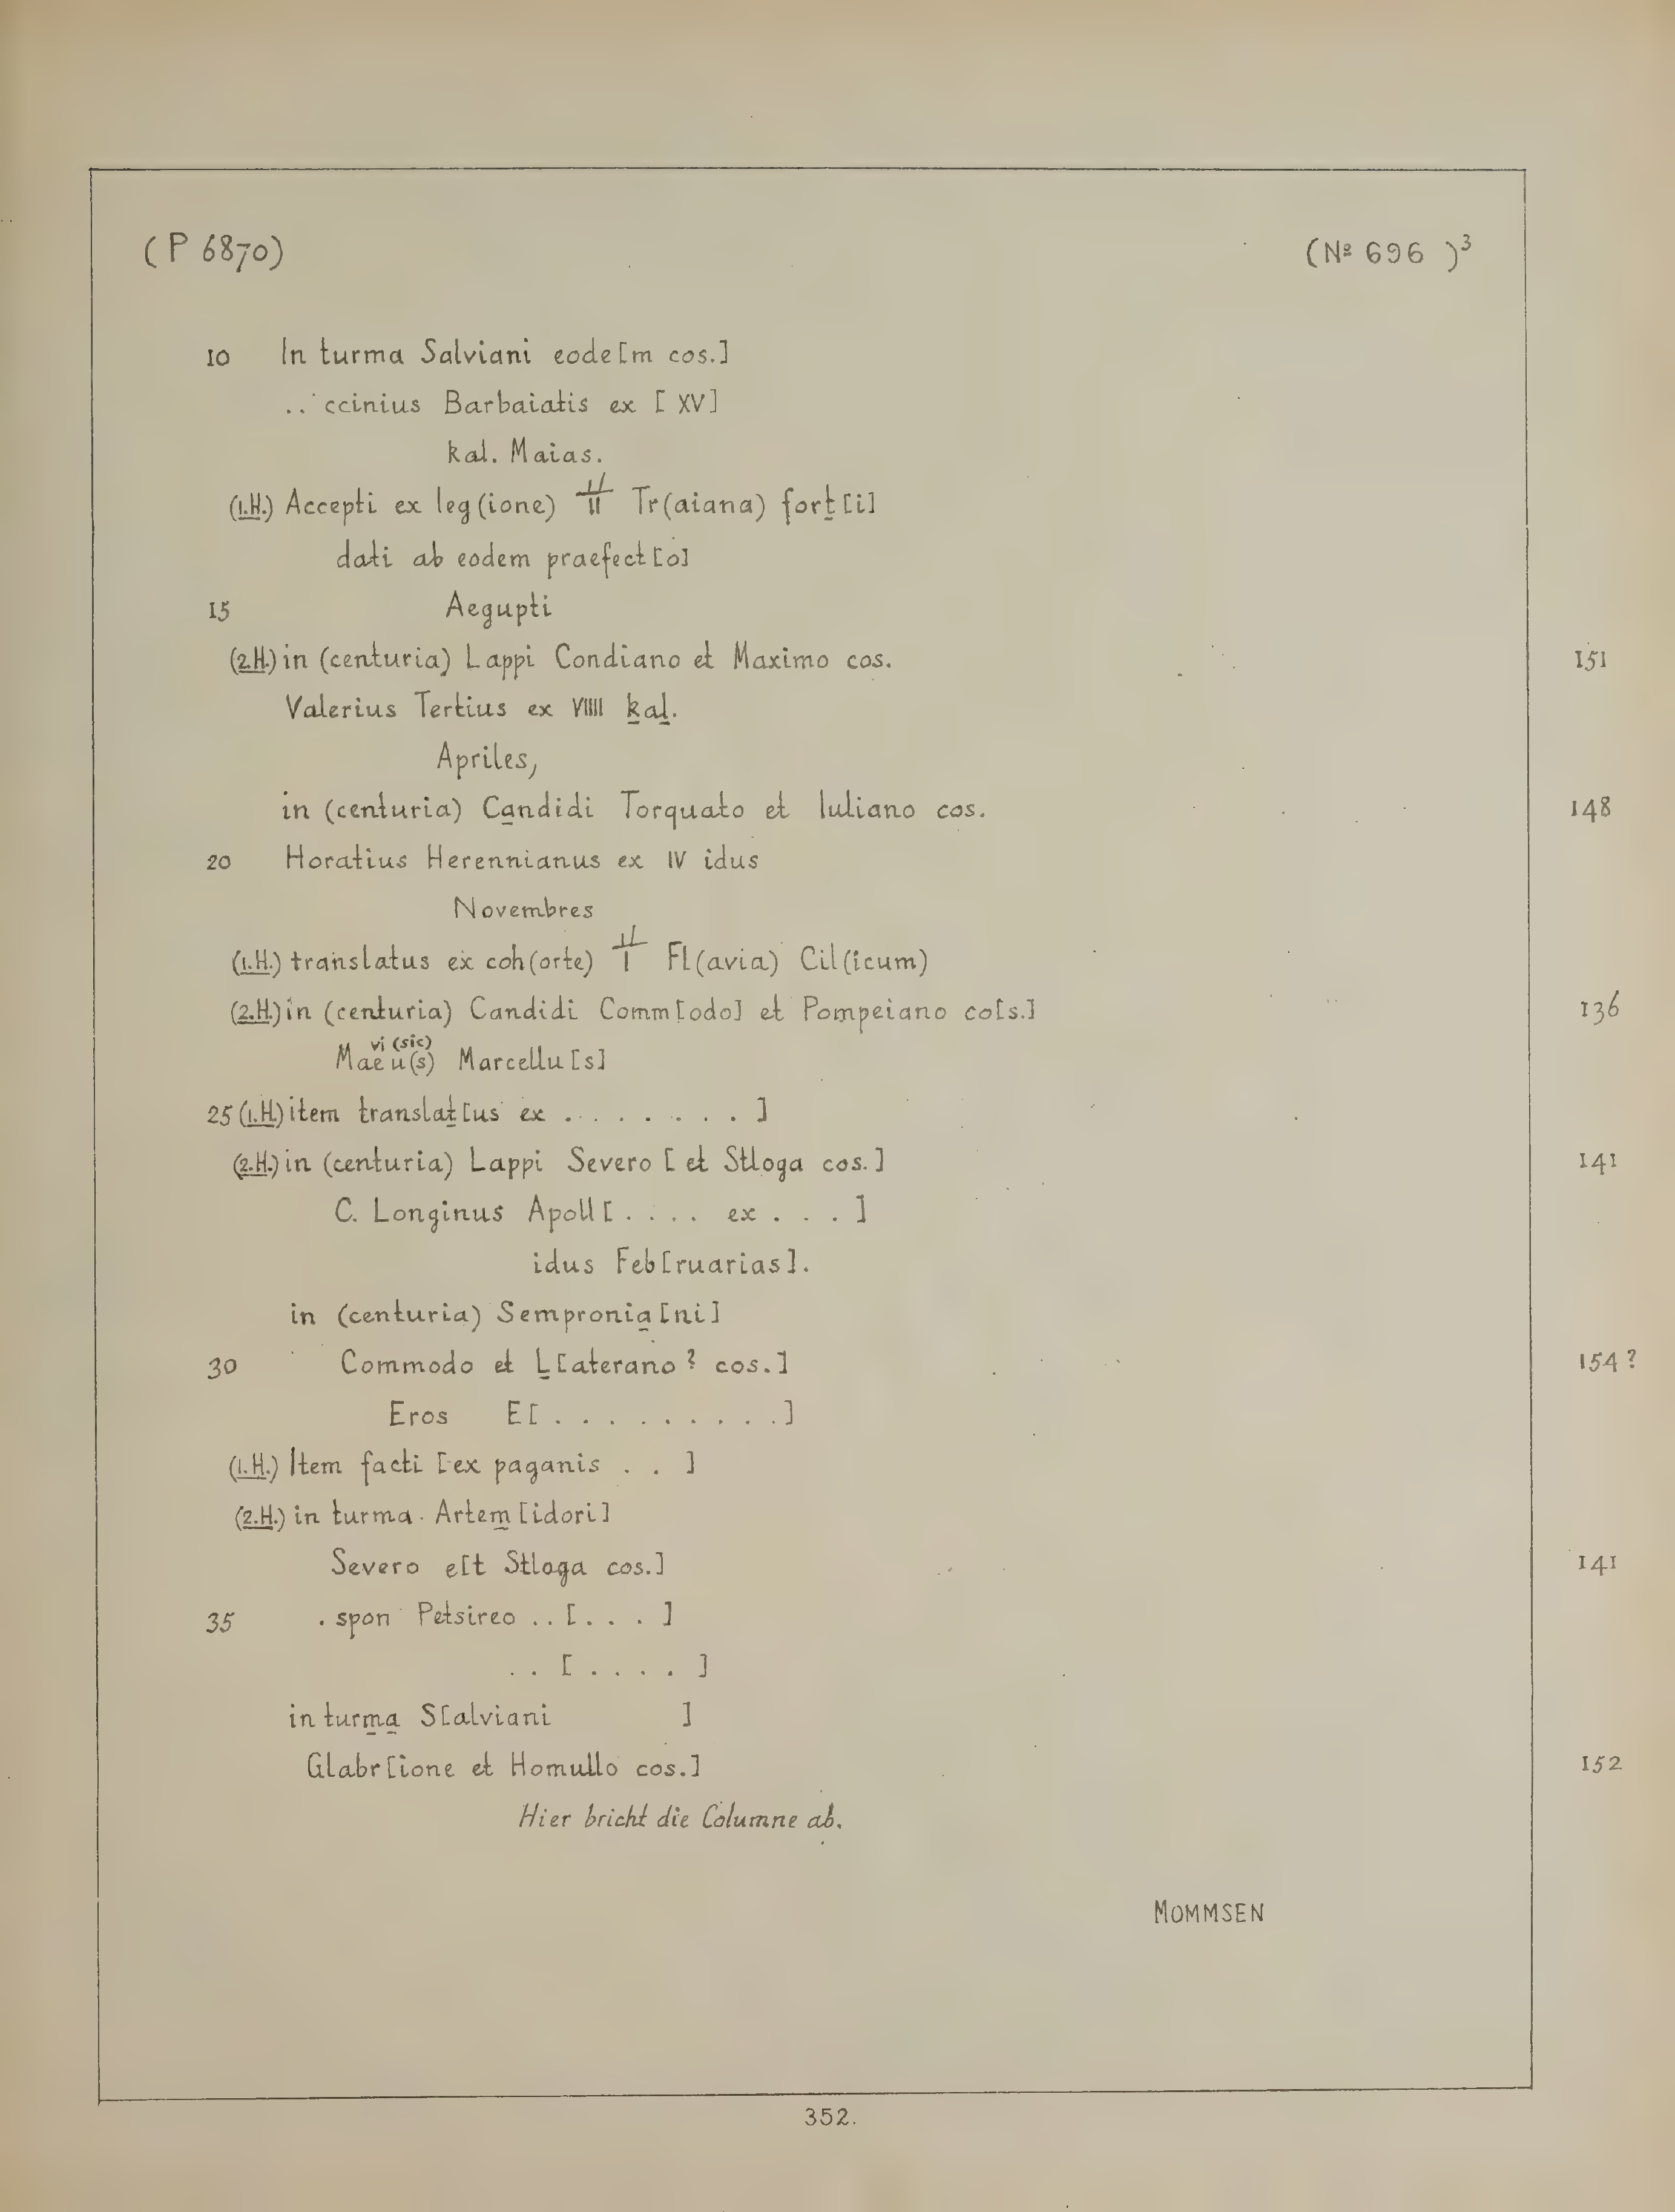 (P 6870) (Nº 696 )³
10 In turma Salviani eode[m cos.]
..ccinius Barbaiatis ex [XV]
kal. Maias.
(1.H.) Accepti ex leg(ione) II Tr(aiana) fort[i]
dati ab eodem praefect[o]
15 Aegupti
(2.H.) in (centuria) Lappi Condiano et Maximo cos. 151
Valerius Tertius ex VIIII kal.
Apriles,
in (centuria) Candidi Torquato et Iuliano cos. 148
20 Horatius Herennianus ex IV idus
Novembres
(1.H.) translatus ex coh(orte) I Fl(avia) Cil(icum)
(2.H.) in (centuria) Candidi Comm[odo] et Pompeiano co[s.] 136
vi (sic)
Mae u(s) Marcellu[s]
25 (1.H.) item translat[us ex . . . . . . . ]
(2.H.) in (centuria) Lappi Severo [et Stloga cos.] 141
C. Longinus Apoll[. . . . ex . . . ]
idus Feb[ruarias].
in (centuria) Sempronia[ni]
30 Commodo et L[aterano? cos.] 154?
Eros E[. . . . . . . . .]
(1.H.) Item facti [ex paganis . . ]
(2.H.) in turma Artem[idori]
Severo e[t Stloga cos.] 141
35 . spon Petsireo . . [. . . ]
. . [. . . . ]
in turma S[alviani ]
Glabr[ione et Homullo cos.] 152
Hier bricht die Columne ab.
MOMMSEN
352.